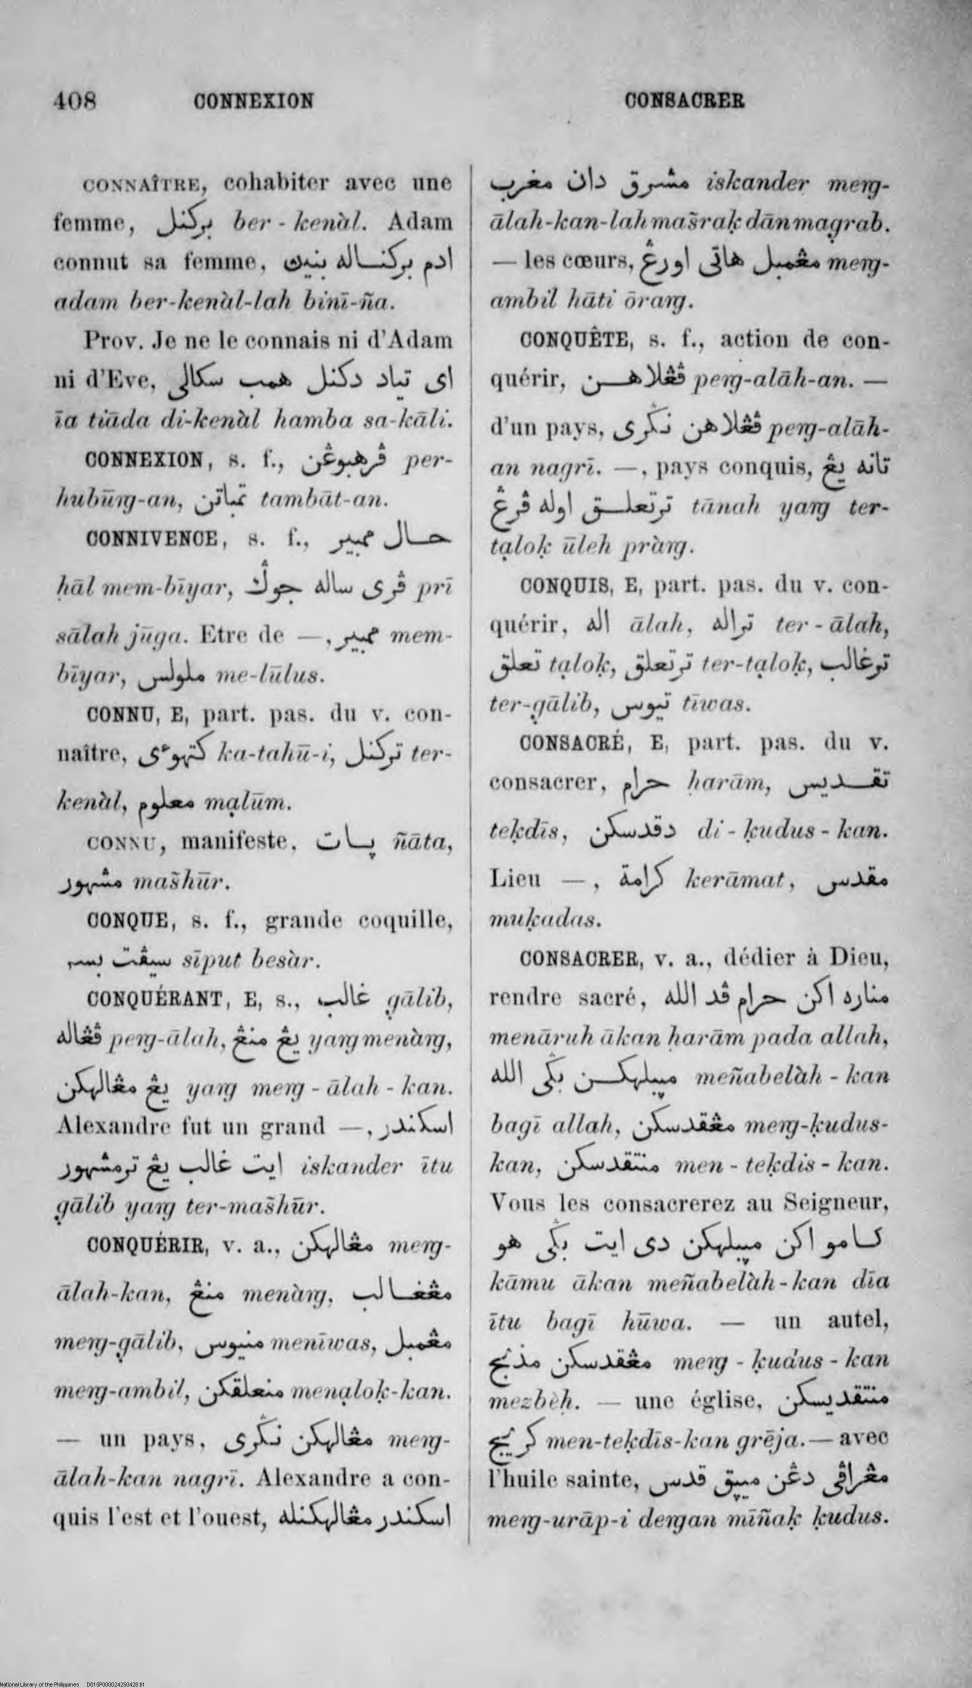 408 CONNEXION
CONSACRER
CONNAÎTRE, cohabiter avec une
femme, بركنل ber-kenàl. Adam
connut sa femme, ادم بركناله بنيڽ
adam ber-kenàl-lah binī-ña.
Prov. Je ne le connais ni d'Adam
ni d'Eve, اى تياد دكنل همب سكالى
īa tiāda di-kenàl hamba sa-kāli.
CONNEXION, s. f., ڤرهبوڠن per-
hubūṛg-an, تمباتن tambāt-an.
CONNIVENCE, s. f., حال ممبير
ḥāl mem-bīyar, ڤرى ساله جوݢ prī
sālah jūga. Etre de —, ممبير mem-
bīyar, ملولس me-lūlus.
CONNU, E, part. pas. du v. con-
naître, كتهوءى ka-tahū-i, تركنل ter-
kenàl, معلوم maạlūm.
CONNU, manifeste, ڽات ñāta,
مشهور mas̃hūr.
CONQUE, s. f., grande coquille,
سيڤت بسر sīput besàr.
CONQUÉRANT, E, s., غالب gālib,
ڤڠاله peṛg-ālah, يڠ منڠ yaṛg menàṛg,
يڠ مڠالهكن yaṛg meṛg-ālah-kan.
Alexandre fut un grand —, اسكندر
ايت غالب يڠ ترمشهور iskander ītu
gālib yaṛg ter-mas̃hūr.
CONQUÉRIR, v. a., مڠالهكن meṛg-
ālah-kan, منڠ menàṛg, مڠغالب
meṛg-gālib, منيوس menīwas, مڠمبل
meṛg-ambil, منعلقكن menạloḳ-kan.
— un pays, مڠالهكن نݢرى meṛg-
ālah-kan nagrī. Alexandre a con-
quis l'est et l'ouest, اسكندر مڠالهكنله
مشرق دان مغرب iskander meṛg-
ālah-kan-lah mas̃raḳ dān magrab.
— les cœurs, مڠمبل هاتى اورڠ meṛg-
ambil hāti ōraṛg.
CONQUÊTE, s. f., action de con-
quérir, ڤڠلاهن peṛg-alāh-an. —
d'un pays, ڤڠلاهن نݢرى peṛg-alāh-
an nagrī. —, pays conquis, تانه يڠ
ترتعلق اوله ڤرڠ tānah yaṛg ter-
tạloḳ ūleh pràṛg.
CONQUIS, E, part. pas. du v. con-
quérir, اله ālah, تراله ter-ālah,
تعلق tạloḳ, ترتعلق ter-tạloḳ, ترغالب
ter-gālib, تيوس tīwas.
CONSACRÉ, E, part. pas. du v.
consacrer, حرام ḥarām, تقديس
teḳdīs, دقدسكن di-ḳudus-kan.
Lieu —, كرامة kerāmat, مقدس
muḳadas.
CONSACRER, v. a., dédier à Dieu,
rendre sacré, مناره اكن حرام ڤد الله
menāruh ākan ḥarām pada allah,
مڽبلهكن بݢى الله meñabelàh-kan
bagī allah, مڠقدسكن meṛg-ḳudus-
kan, منتقدسكن men-teḳdis-kan.
Vous les consacrerez au Seigneur,
كامو اكن مڽبلهكن دى ايت بݢى هو
kāmu ākan meñabelàh-kan dīa
ītu bagī hūwa. — un autel,
مڠقدسكن مذبح meṛg-ḳudus-kan
mezbèḥ. — une église, منتقديسكن
كريج men-teḳdīs-kan grēja. — avec
l'huile sainte, مڠراڤى دڠن ميڽق قدس
meṛg-urāp-i deṛgan mīñaḳ ḳudus.
National Library of the Philippines